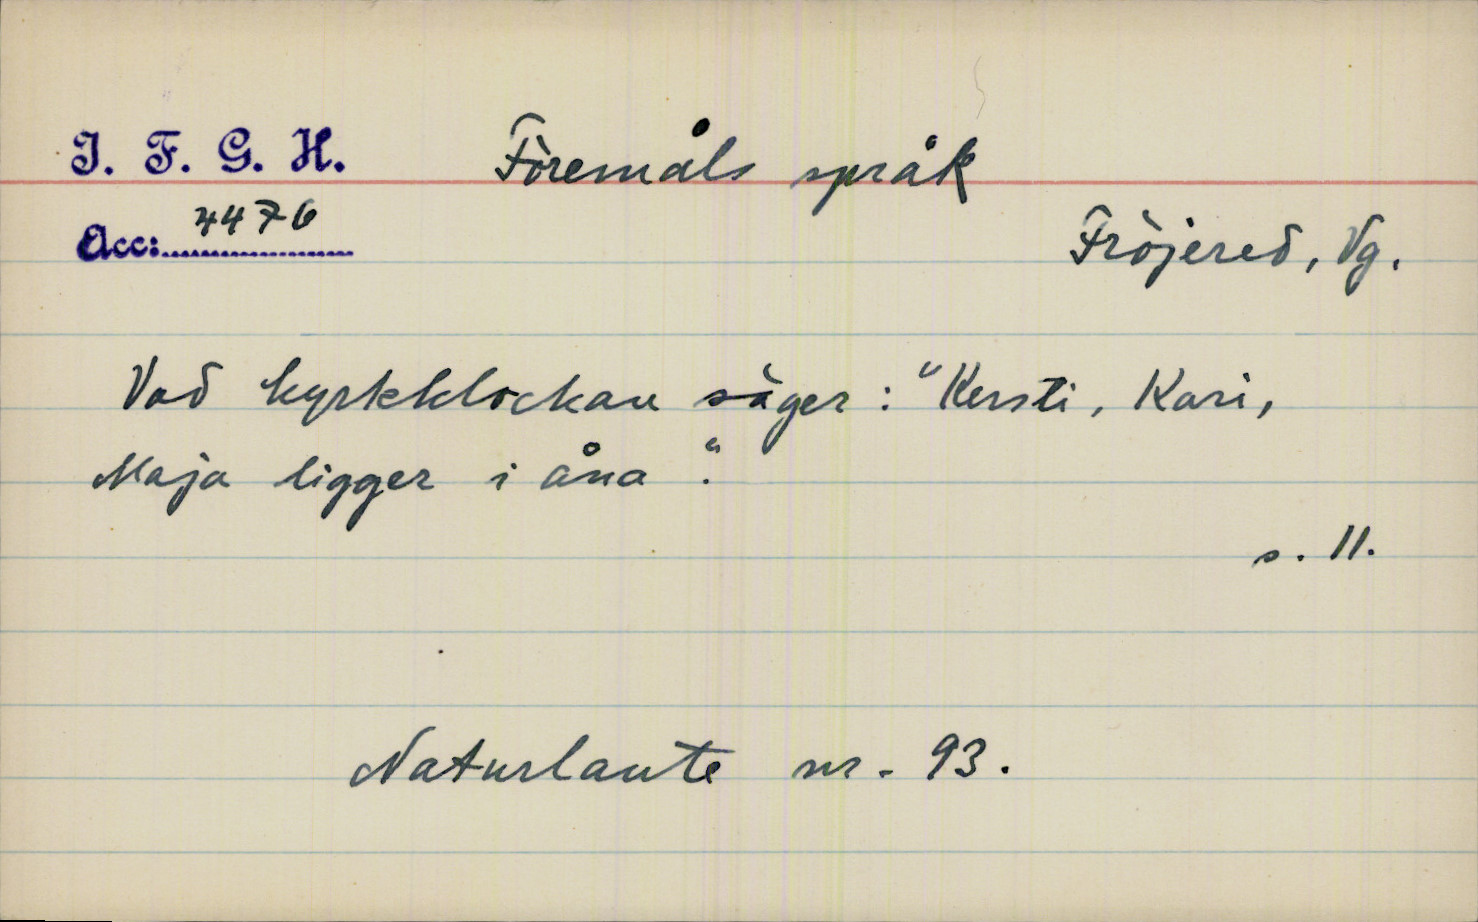 I. F. G. H.
Föremåls språk
Acc: 4476
Fröjered, Vg.
Vad kyrkklockan säger: "Kersti, Kari,
Maja ligger i åna".
s. 11.
Naturlaute nr. 93.